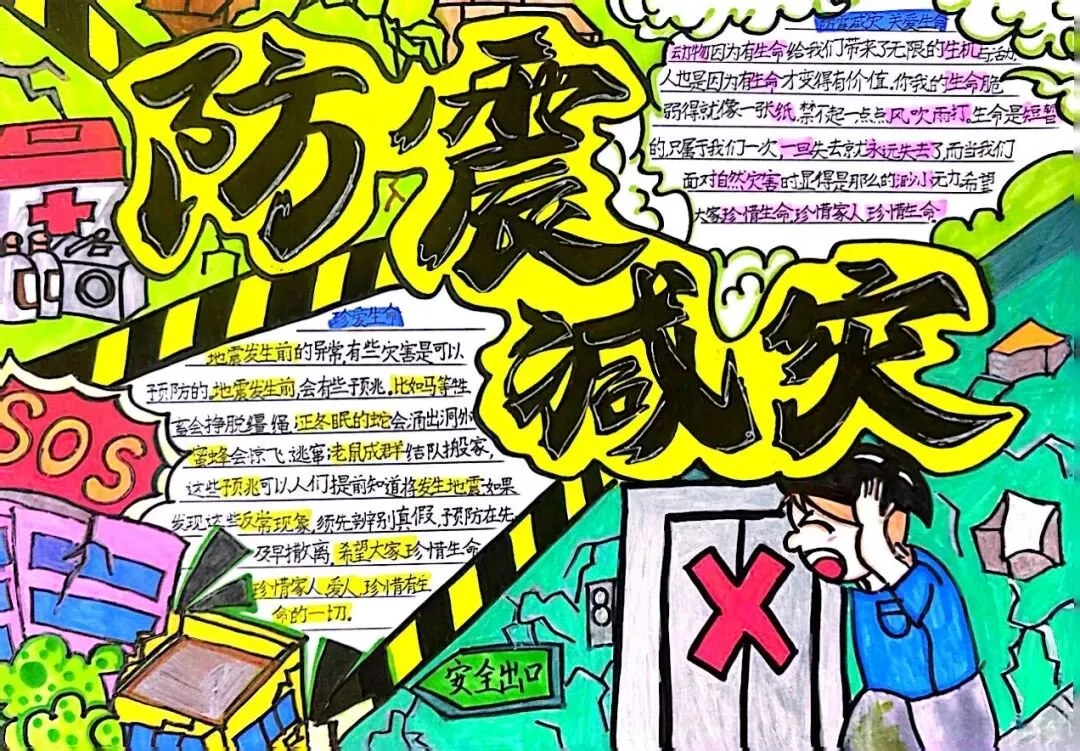 防震
减灾
防震减灾 关爱生命
动物因为有生命给我们带来了无限的生机与活动.
人也是因为有生命才变得有价值.你我的生命脆
弱得就像一张纸,禁不起一点点风吹雨打.生命是短暂
的,只属于我们一次,一旦失去就永远失去了,而当我们
面对自然灾害时显得是那么的渺小无力,希望
大家珍惜生命,珍惜家人,珍惜生命.
珍爱生命
地震发生前的异常,有些灾害是可以
预防的,地震发生前,会有些预兆.比如马等牲
畜会挣脱缰绳,正冬眠的蛇会涌出洞外
蜜蜂会惊飞逃窜;老鼠成群结队搬家,
这些预兆可以人们提前知道将发生地震如果
发现这些反常现象,须先辨别真假,预防在先
及早撤离.希望大家珍惜生命
珍惜家人,爱人,珍惜有生
命的一切.
SOS
8
安全出口